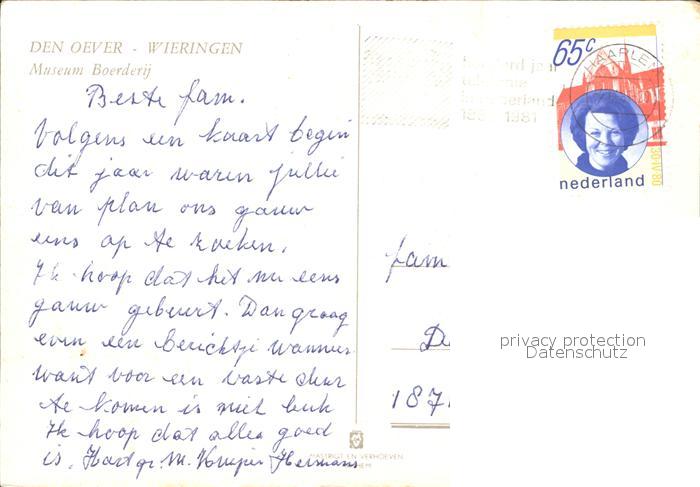 DEN OEVER - WIERINGEN
Museum Boerderij
Beste fam.
Volgens een kaart begin
dit jaar waren jullie
van plan ons gauw
eens op te zoeken.
Ik hoop dat het nu eens
gauw gebeurt. Dan graag
even een berichtje wanneer
want voor een vaste deur
te komen is niet leuk
Ik hoop dat alles goed
is. Hart. gr. M. Kuiper-Hermans
fam
De
187
65c
HAARLEM
jaar
1981
nederland
30-IV-80
privacy protection
Datenschutz